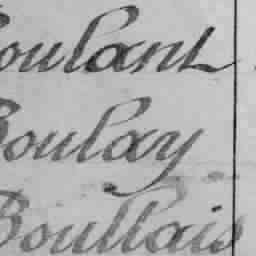 Boulant
Boulay
Boullais